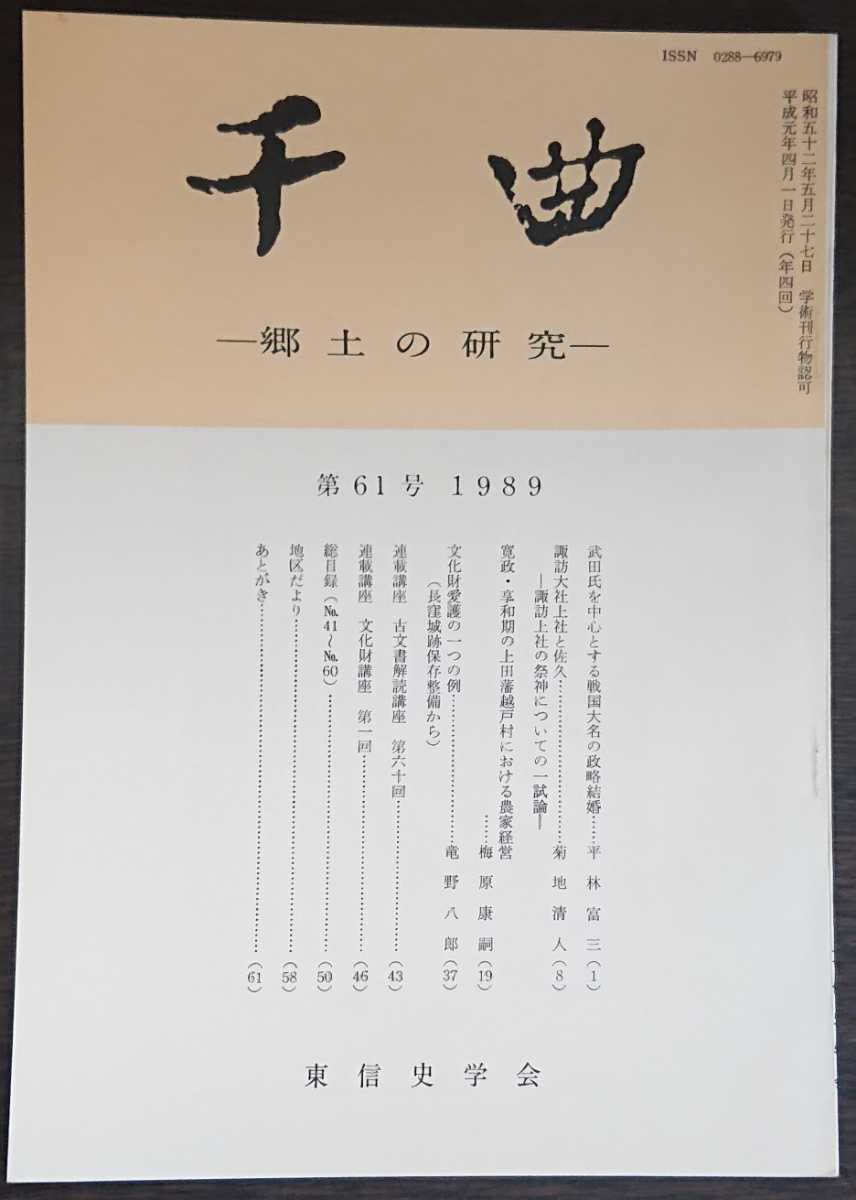 ISSN 0288—6979
昭和五十二年五月二十七日　学術刊行物認可
平成元年四月一日発行（年四回）
千曲
—郷土の研究—
第61号 1989
武田氏を中心とする戦国大名の政略結婚……平林富三（1）
諏訪大社上社と佐久……………………菊地清人（8）
—諏訪上社の祭神についての一試論—
寛政・享和期の上田藩越戸村における農家経営
……梅原康嗣（19）
文化財愛護の一つの例……………………竜野八郎（37）
（長窪城跡保存整備から）
連載講座　古文書解読講座　第六十回……………………（43）
連載講座　文化財講座　第一回……………………（46）
総目録（№41～№60）……………………（50）
地区だより……………………（58）
あとがき……………………（61）
東信史学会